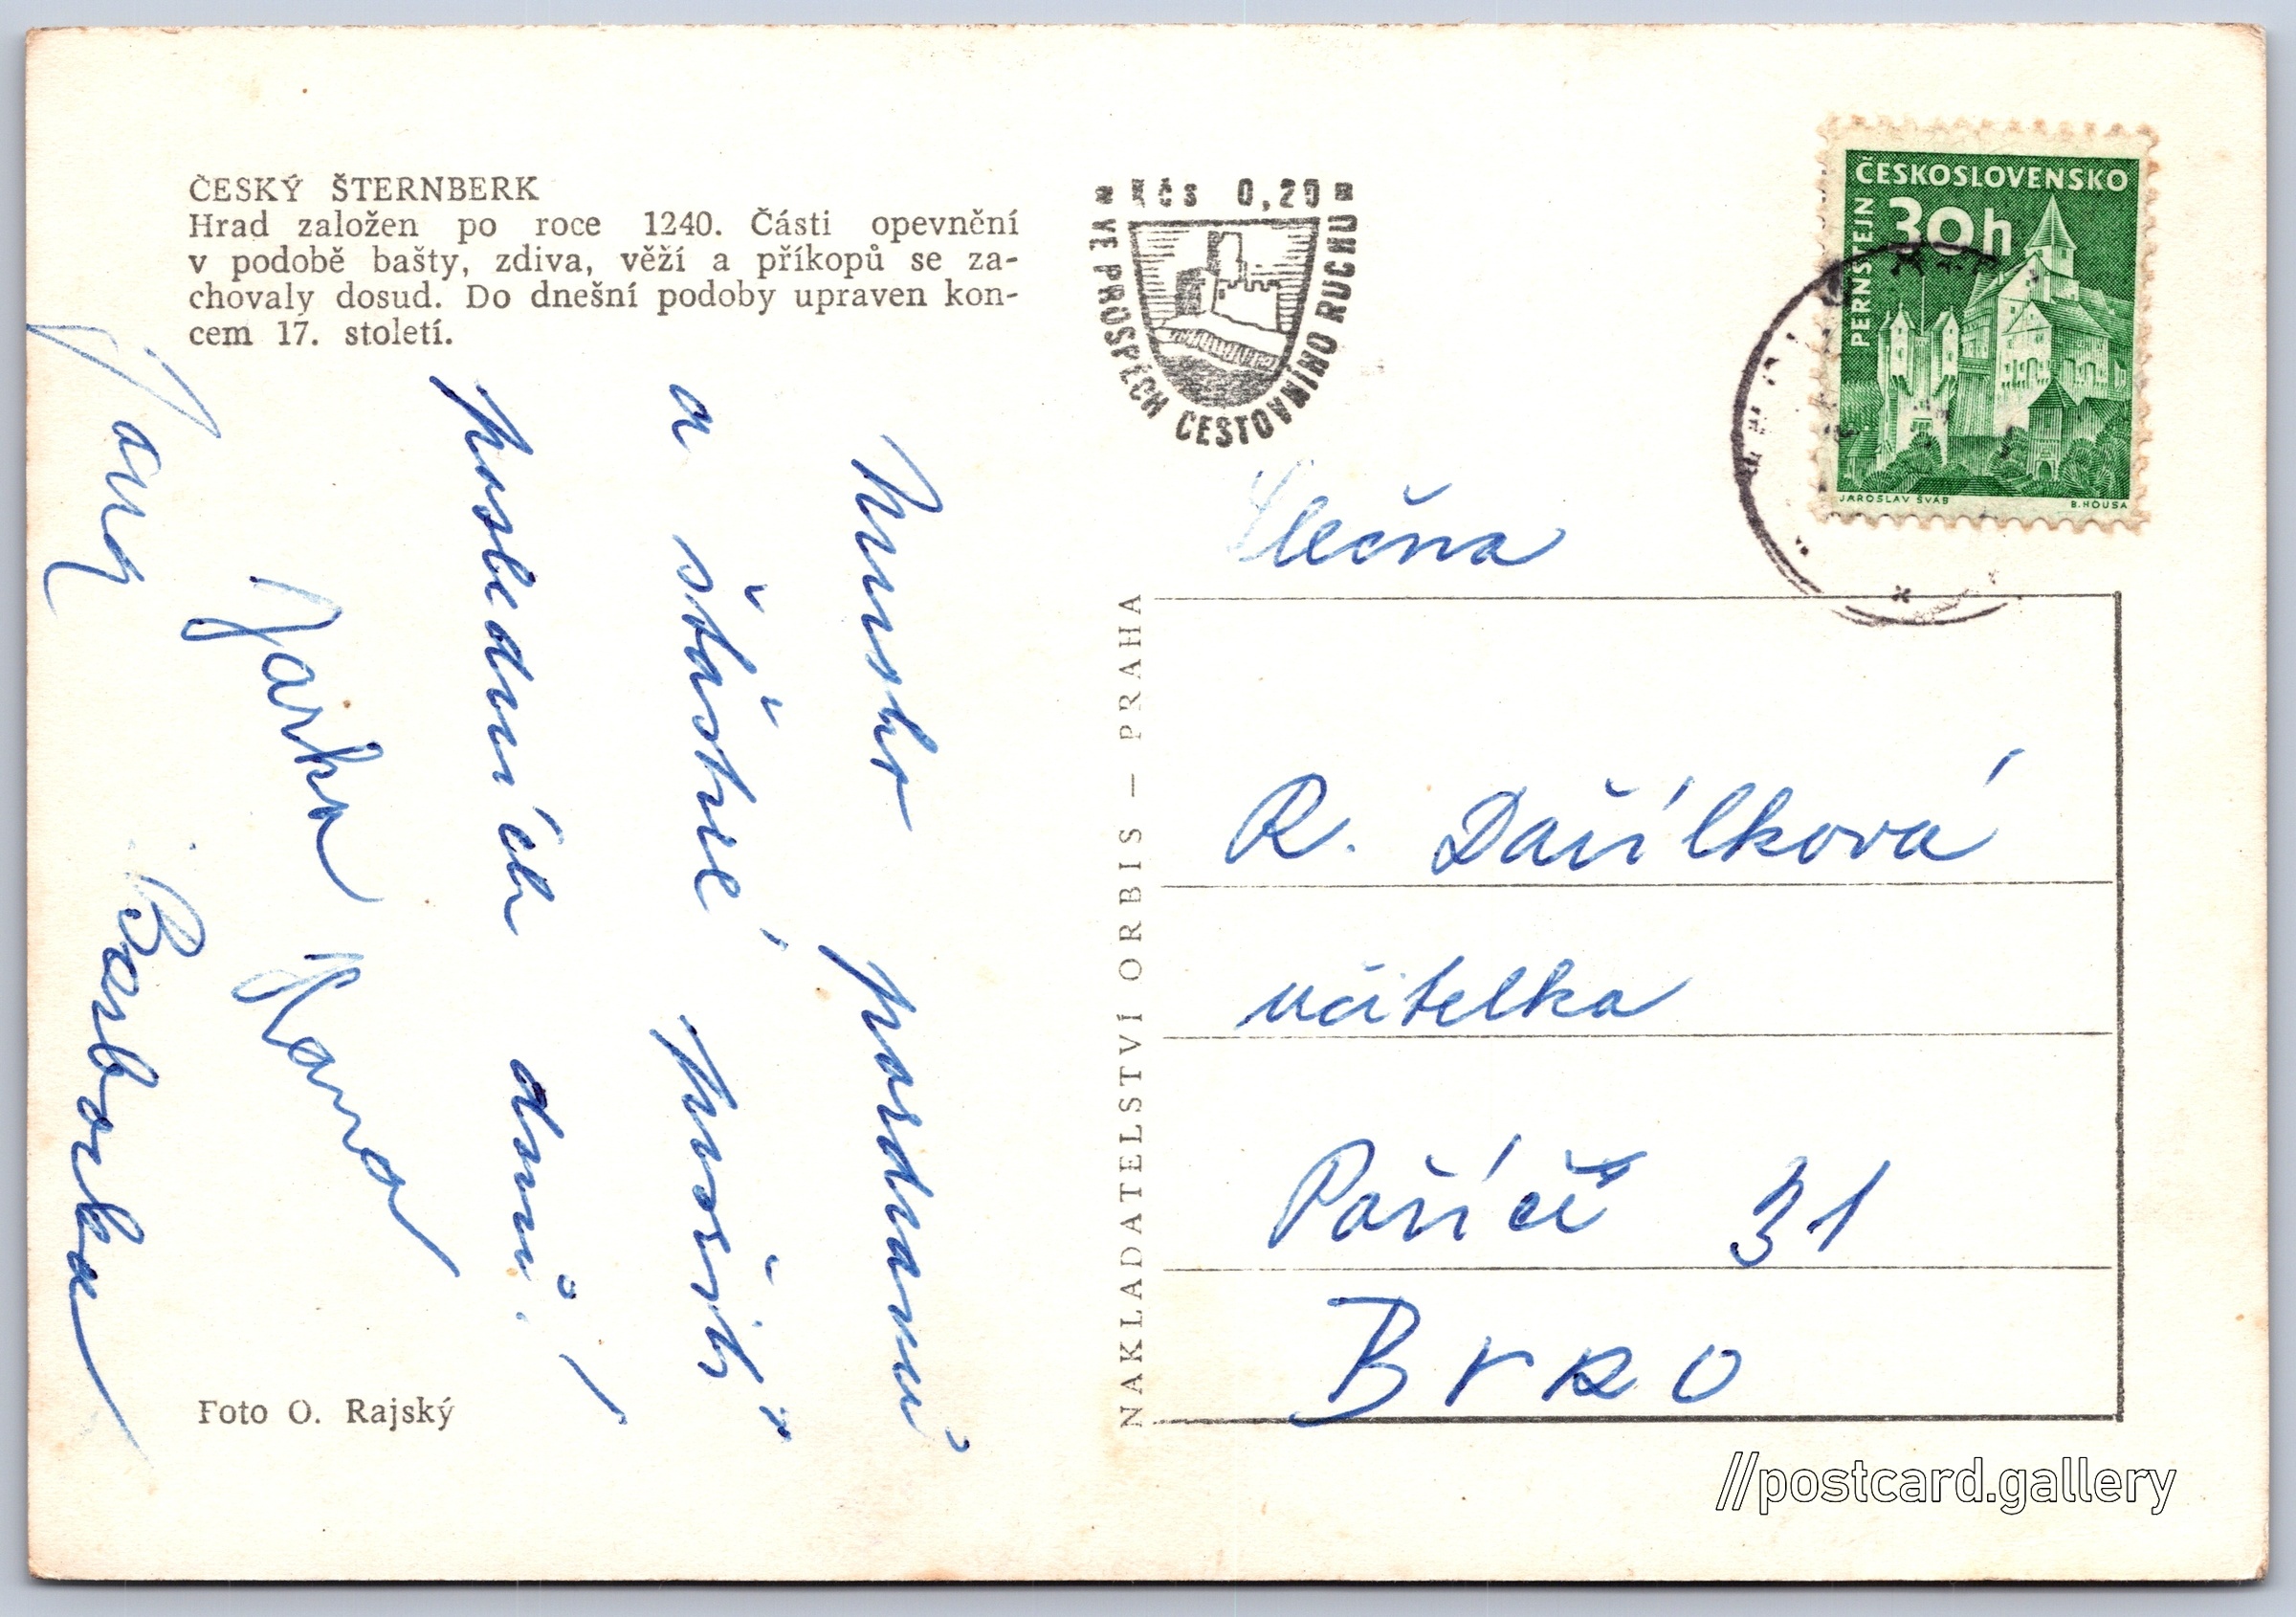 ČESKÝ ŠTERNBERK
Hrad založen po roce 1240. Části opevnění
v podobě bašty, zdiva, věží a příkopů se za-
chovaly dosud. Do dnešní podoby upraven kon-
cem 17. století.
Kčs 0,20
VE PROSPĚCH CESTOVNÍHO RUCHU
ČESKOSLOVENSKO
30h
PERNŠTEJN
JAROSLAV ŠVÁB
B. HOUSA
Mnoho pozdravů
a šťastné prožití
posledních dnů!
Jarka Hana
Barborka
Slečna
R. Dařílková
učitelka
Poříčí 31
Brno
NAKLADATELSTVÍ ORBIS – PRAHA
Foto O. Rajský
//postcard.gallery